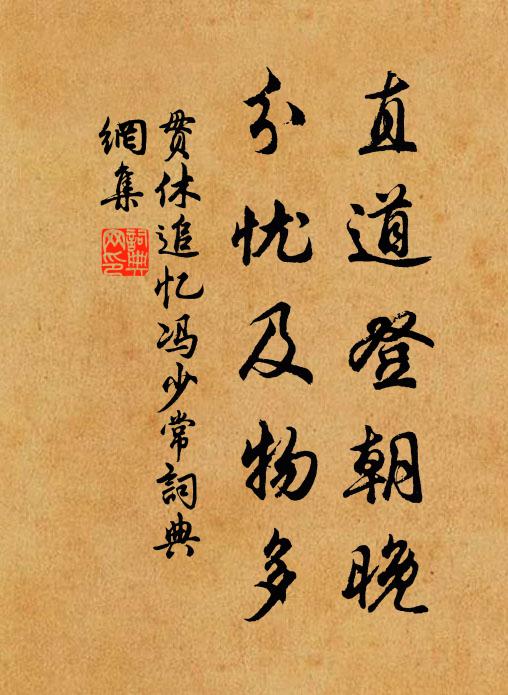 直道登朝晚
分忧及物多
贯休追忆冯少常詞典
網集
詞典網印